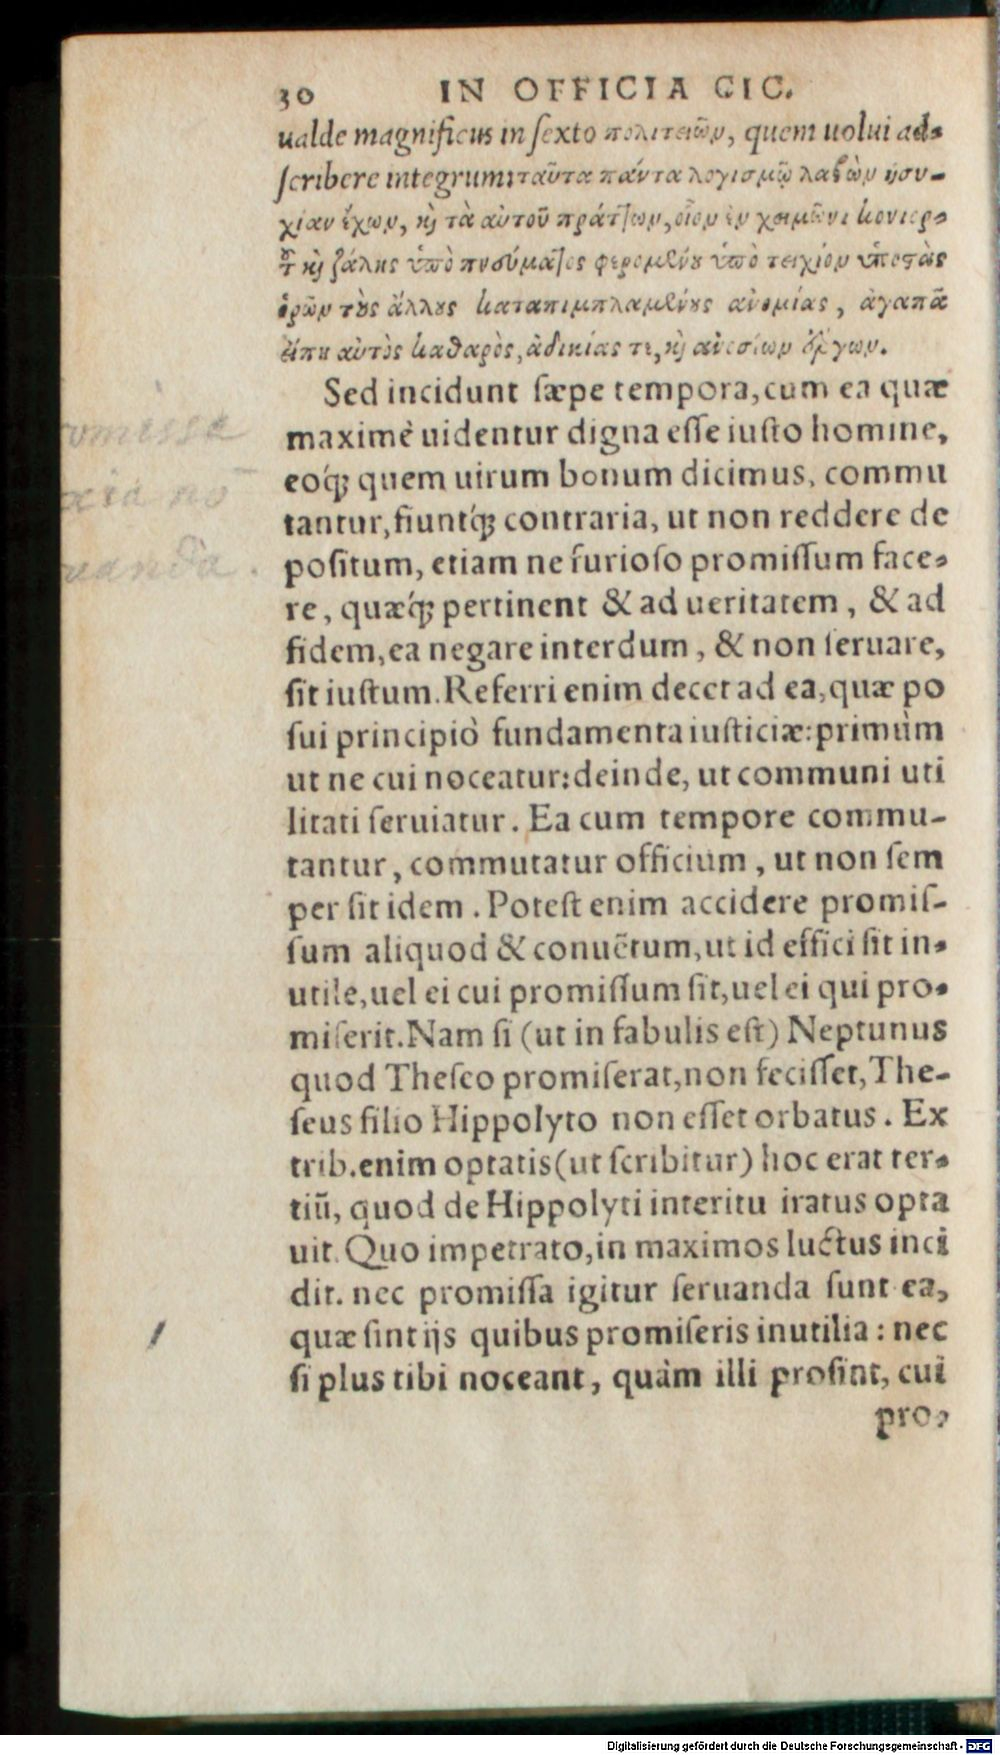 30 IN OFFICIA CIC.
ualde magnificus in ſexto πολιτειῶν, quem uolui ad-
ſcribere integrum: ταῦτα πάντα λογισμῷ λαβὼν ἡσυ-
χίαν ἔχων, καὶ τὰ αὐτοῦ πράττων, οἷον ἐν χειμῶνι κονιορ-
τοῦ καὶ ζάλης ὑπὸ πνεύματος φερομένου ὑπὸ τειχίον ὑποστὰς
ὁρῶν τοὺς ἄλλους καταπιμπλαμένους ἀνομίας, ἀγαπᾶ
εἴπῃ αὐτὸς καθαρὸς, ἀδικίας τε, καὶ ἀνοσίων ἔργων.
Sed incidunt ſæpe tempora, cum ea quæ
maximè uidentur digna eſſe iuſto homine,
eoq́; quem uirum bonum dicimus, commu
tantur, fiuntq́; contraria, ut non reddere de
poſitum, etiam ne furioſo promiſſum face-
re, quæq́; pertinent & ad ueritatem, & ad
fidem, ea negare interdum, & non ſeruare,
ſit iuſtum. Referri enim decet ad ea, quæ po
ſui principiò fundamenta iuſticiæ: primùm
ut ne cui noceatur: deinde, ut communi uti
litati ſeruiatur. Ea cum tempore commu-
tantur, commutatur officium, ut non ſem
per ſit idem. Poteſt enim accidere promiſ-
ſum aliquod & conuẽtum, ut id effici ſit in-
utile, uel ei cui promiſſum ſit, uel ei qui pro-
miſerit. Nam ſi (ut in fabulis eſt) Neptunus
quod Theſeo promiſerat, non feciſſet, The-
ſeus filio Hippolyto non eſſet orbatus. Ex
trib. enim optatis (ut ſcribitur) hoc erat ter-
tiũ, quod de Hippolyti interitu iratus opta
uit. Quo impetrato, in maximos luctus inci
dit. nec promiſſa igitur ſeruanda ſunt ea,
quæ ſint ijs quibus promiſeris inutilia: nec
ſi plus tibi noceant, quàm illi proſint, cui
pro-
omissa
nō
uanda.
Digitalisierung gefördert durch die Deutsche Forschungsgemeinschaft - DFG